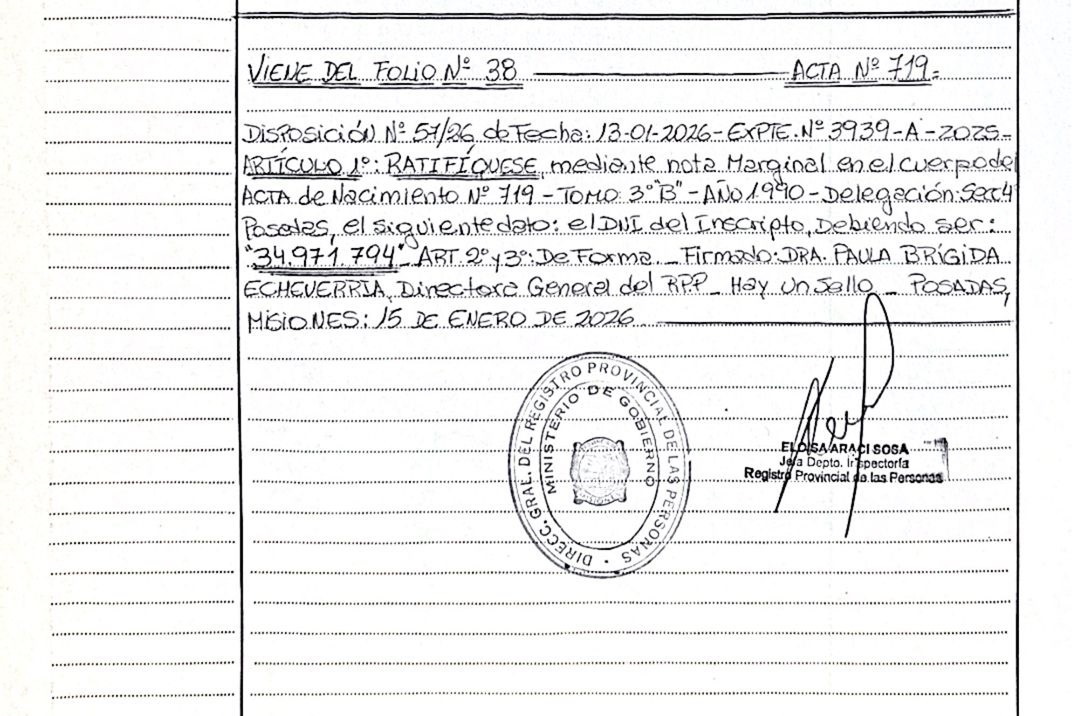 VIENE DEL FOLIO Nº 38 ACTA Nº 719.
DISPOSICIÓN Nº 57/26 de Fecha: 13-01-2026 - EXPTE. Nº 3939-A-2025-
ARTÍCULO 1º: RATIFÍQUESE, mediante nota Marginal en el cuerpo de
ACTA de Nacimiento Nº 719 - TOMO 3º "B" - AÑO 1990 - Delegación Secc 4
Posadas, el siguiente dato: el DNI del Inscripto, Debiendo ser:
"34.971.794" ART 2º y 3º: De Forma _ Firmado: DRA. PAULA BRÍGIDA
ECHEVERRIA, Directora General del RPP _ Hay un Sello _ POSADAS,
MISIONES: 15 DE ENERO DE 2026
DIRECC. GRAL. DEL REGISTRO PROVINCIAL DE LAS PERSONAS
MINISTERIO DE GOBIERNO
ELOISA ARACI SOSA
Jefa Depto. Inspectoría
Registro Provincial de las Personas